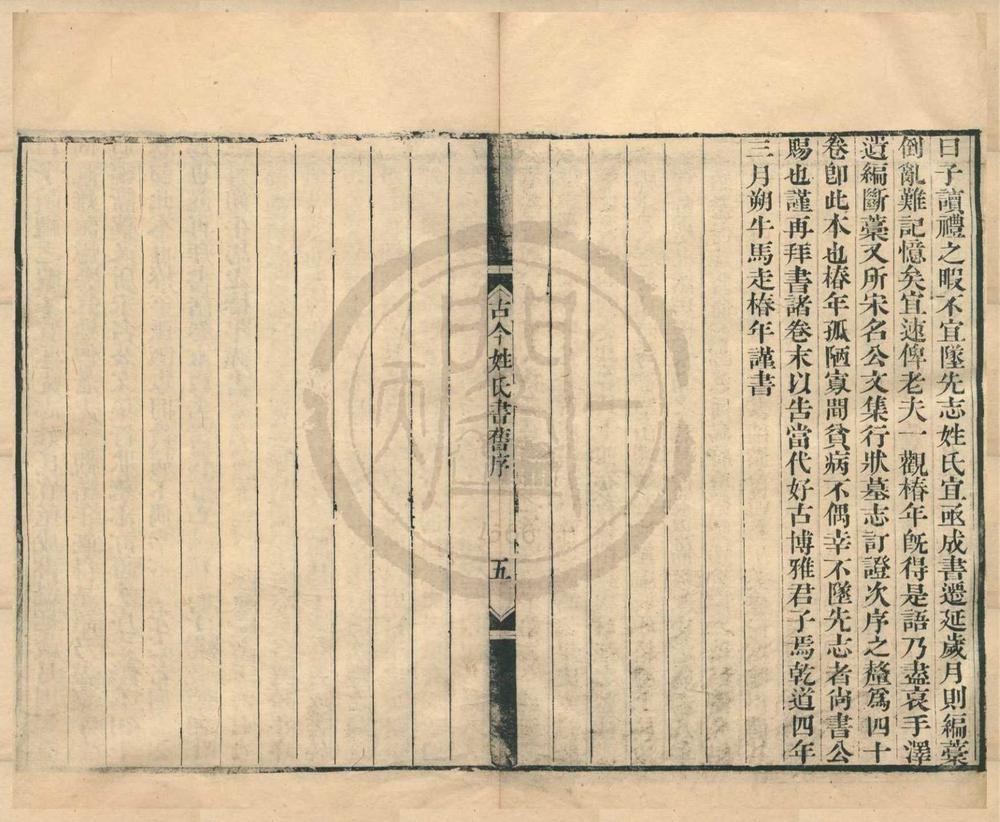 曰子讀禮之暇不宜墜先志姓氏宜亟成書遷延歲月則編藁
倒亂難記憶矣宜速俾老夫一觀椿年旣得是語乃盡裒手澤
遺編斷藁又所宋名公文集行狀墓志訂證次序之釐爲四十
卷卽此本也椿年孤陋寡聞貧病不偶幸不墜先志者尙書公
賜也謹再拜書諸卷末以告當代好古博雅君子焉乾道四年
三月朔牛馬走椿年謹書
古今姓氏書舊序
五